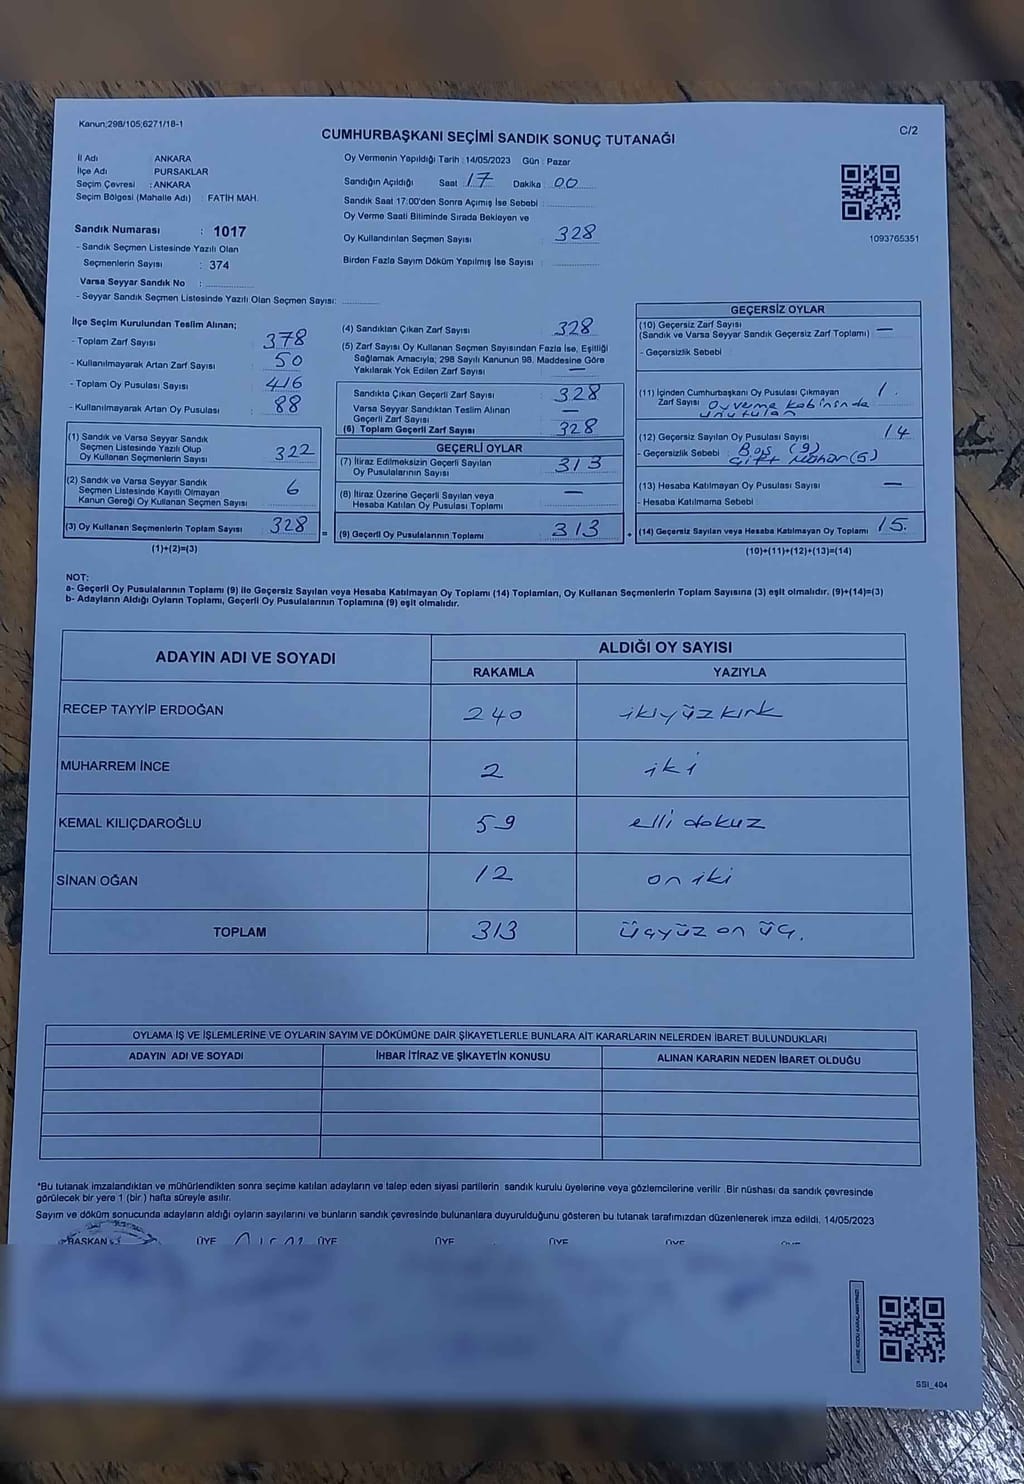 Kanun;298/105;6271/18-1
C/2
CUMHURBAŞKANI SEÇİMİ SANDIK SONUÇ TUTANAĞI
İl Adı ANKARA
İlçe Adı PURSAKLAR
Seçim Çevresi : ANKARA
Seçim Bölgesi (Mahalle Adı) : FATİH MAH.
Sandık Numarası : 1017
- Sandık Seçmen Listesinde Yazılı Olan
Seçmenlerin Sayısı : 374
Varsa Seyyar Sandık No :
- Seyyar Sandık Seçmen Listesinde Yazılı Olan Seçmen Sayısı:
Oy Vermenin Yapıldığı Tarih : 14/05/2023 Gün : Pazar
Sandığın Açıldığı Saat 17 Dakika 00
Sandık Saat 17:00'den Sonra Açımış İse Sebebi
Oy Verme Saati Bitiminde Sırada Bekleyen ve
Oy Kullandırılan Seçmen Sayısı : 328
Birden Fazla Sayım Döküm Yapılmış İse Sayısı :
1093765351
İlçe Seçim Kurulundan Teslim Alınan;
- Toplam Zarf Sayısı : 378
- Kullanılmayarak Artan Zarf Sayısı : 50
- Toplam Oy Pusulası Sayısı : 416
- Kullanılmayarak Artan Oy Pusulası : 88
(1) Sandık ve Varsa Seyyar Sandık
Seçmen Listesinde Yazılı Olup
Oy Kullanan Seçmenlerin Sayısı : 322
(2) Sandık ve Varsa Seyyar Sandık
Seçmen Listesinde Kayıtlı Olmayan
Kanun Gereği Oy Kullanan Seçmen Sayısı : 6
(3) Oy Kullanan Seçmenlerin Toplam Sayısı : 328
(1)+(2)=(3)
(4) Sandıktan Çıkan Zarf Sayısı : 328
(5) Zarf Sayısı Oy Kullanan Seçmen Sayısından Fazla İse, Eşitliği
Sağlamak Amacıyla; 298 Sayılı Kanunun 98. Maddesine Göre
Yakılarak Yok Edilen Zarf Sayısı : —
Sandıkta Çıkan Geçerli Zarf Sayısı : 328
Varsa Seyyar Sandıktan Teslim Alınan
Geçerli Zarf Sayısı : —
(6) Toplam Geçerli Zarf Sayısı : 328
GEÇERLİ OYLAR
(7) İtiraz Edilmeksizin Geçerli Sayılan
Oy Pusulalarının Sayısı : 313
(8) İtiraz Üzerine Geçerli Sayılan veya
Hesaba Katılan Oy Pusulası Toplamı : —
(9) Geçerli Oy Pusulalarının Toplamı : 313
GEÇERSİZ OYLAR
(10) Geçersiz Zarf Sayısı
(Sandık ve Varsa Seyyar Sandık Geçersiz Zarf Toplamı) : —
- Geçersizlik Sebebi
(11) İçinden Cumhurbaşkanı Oy Pusulası Çıkmayan
Zarf Sayısı : 1
Oy verme kabininde
unutulan
(12) Geçersiz Sayılan Oy Pusulası Sayısı : 14
- Geçersizlik Sebebi : Boş (9)
Çift Mühür (5)
(13) Hesaba Katılmayan Oy Pusulası Sayısı : —
- Hesaba Katılmama Sebebi
(14) Geçersiz Sayılan veya Hesaba Katılmayan Oy Toplamı : 15.
(10)+(11)+(12)+(13)=(14)
NOT:
a- Geçerli Oy Pusulalarının Toplamı (9) ile Geçersiz Sayılan veya Hesaba Katılmayan Oy Toplamı (14) Toplamları, Oy Kullanan Seçmenlerin Toplam Sayısına (3) eşit olmalıdır. (9)+(14)=(3)
b- Adayların Aldığı Oyların Toplamı, Geçerli Oy Pusulalarının Toplamına (9) eşit olmalıdır.
ADAYIN ADI VE SOYADI ALDIĞI OY SAYISI
RAKAMLA YAZIYLA
RECEP TAYYİP ERDOĞAN 240 ikiyüzkırk
MUHARREM İNCE 2 iki
KEMAL KILIÇDAROĞLU 59 elli dokuz
SİNAN OĞAN 12 on iki
TOPLAM 313 üçyüz on üç.
OYLAMA İŞ VE İŞLEMLERİNE VE OYLARIN SAYIM VE DÖKÜMÜNE DAİR ŞİKAYETLERLE BUNLARA AİT KARARLARIN NELERDEN İBARET BULUNDUKLARI
ADAYIN ADI VE SOYADI İHBAR İTİRAZ VE ŞİKAYETİN KONUSU ALINAN KARARIN NEDEN İBARET OLDUĞU
*Bu tutanak imzalandıktan ve mühürlendikten sonra seçime katılan adayların ve talep eden siyasi partilerin sandık kurulu üyelerine veya gözlemcilerine verilir. Bir nüshası da sandık çevresinde
görülecek bir yere 1 (bir) hafta süreyle asılır.
Sayım ve döküm sonucunda adayların aldığı oyların sayılarını ve bunların sandık çevresinde bulunanlara duyurulduğunu gösteren bu tutanak tarafımızdan düzenlenerek imza edildi. 14/05/2023
BAŞKAN ÜYE ÜYE ÜYE ÜYE ÜYE
SSI_404